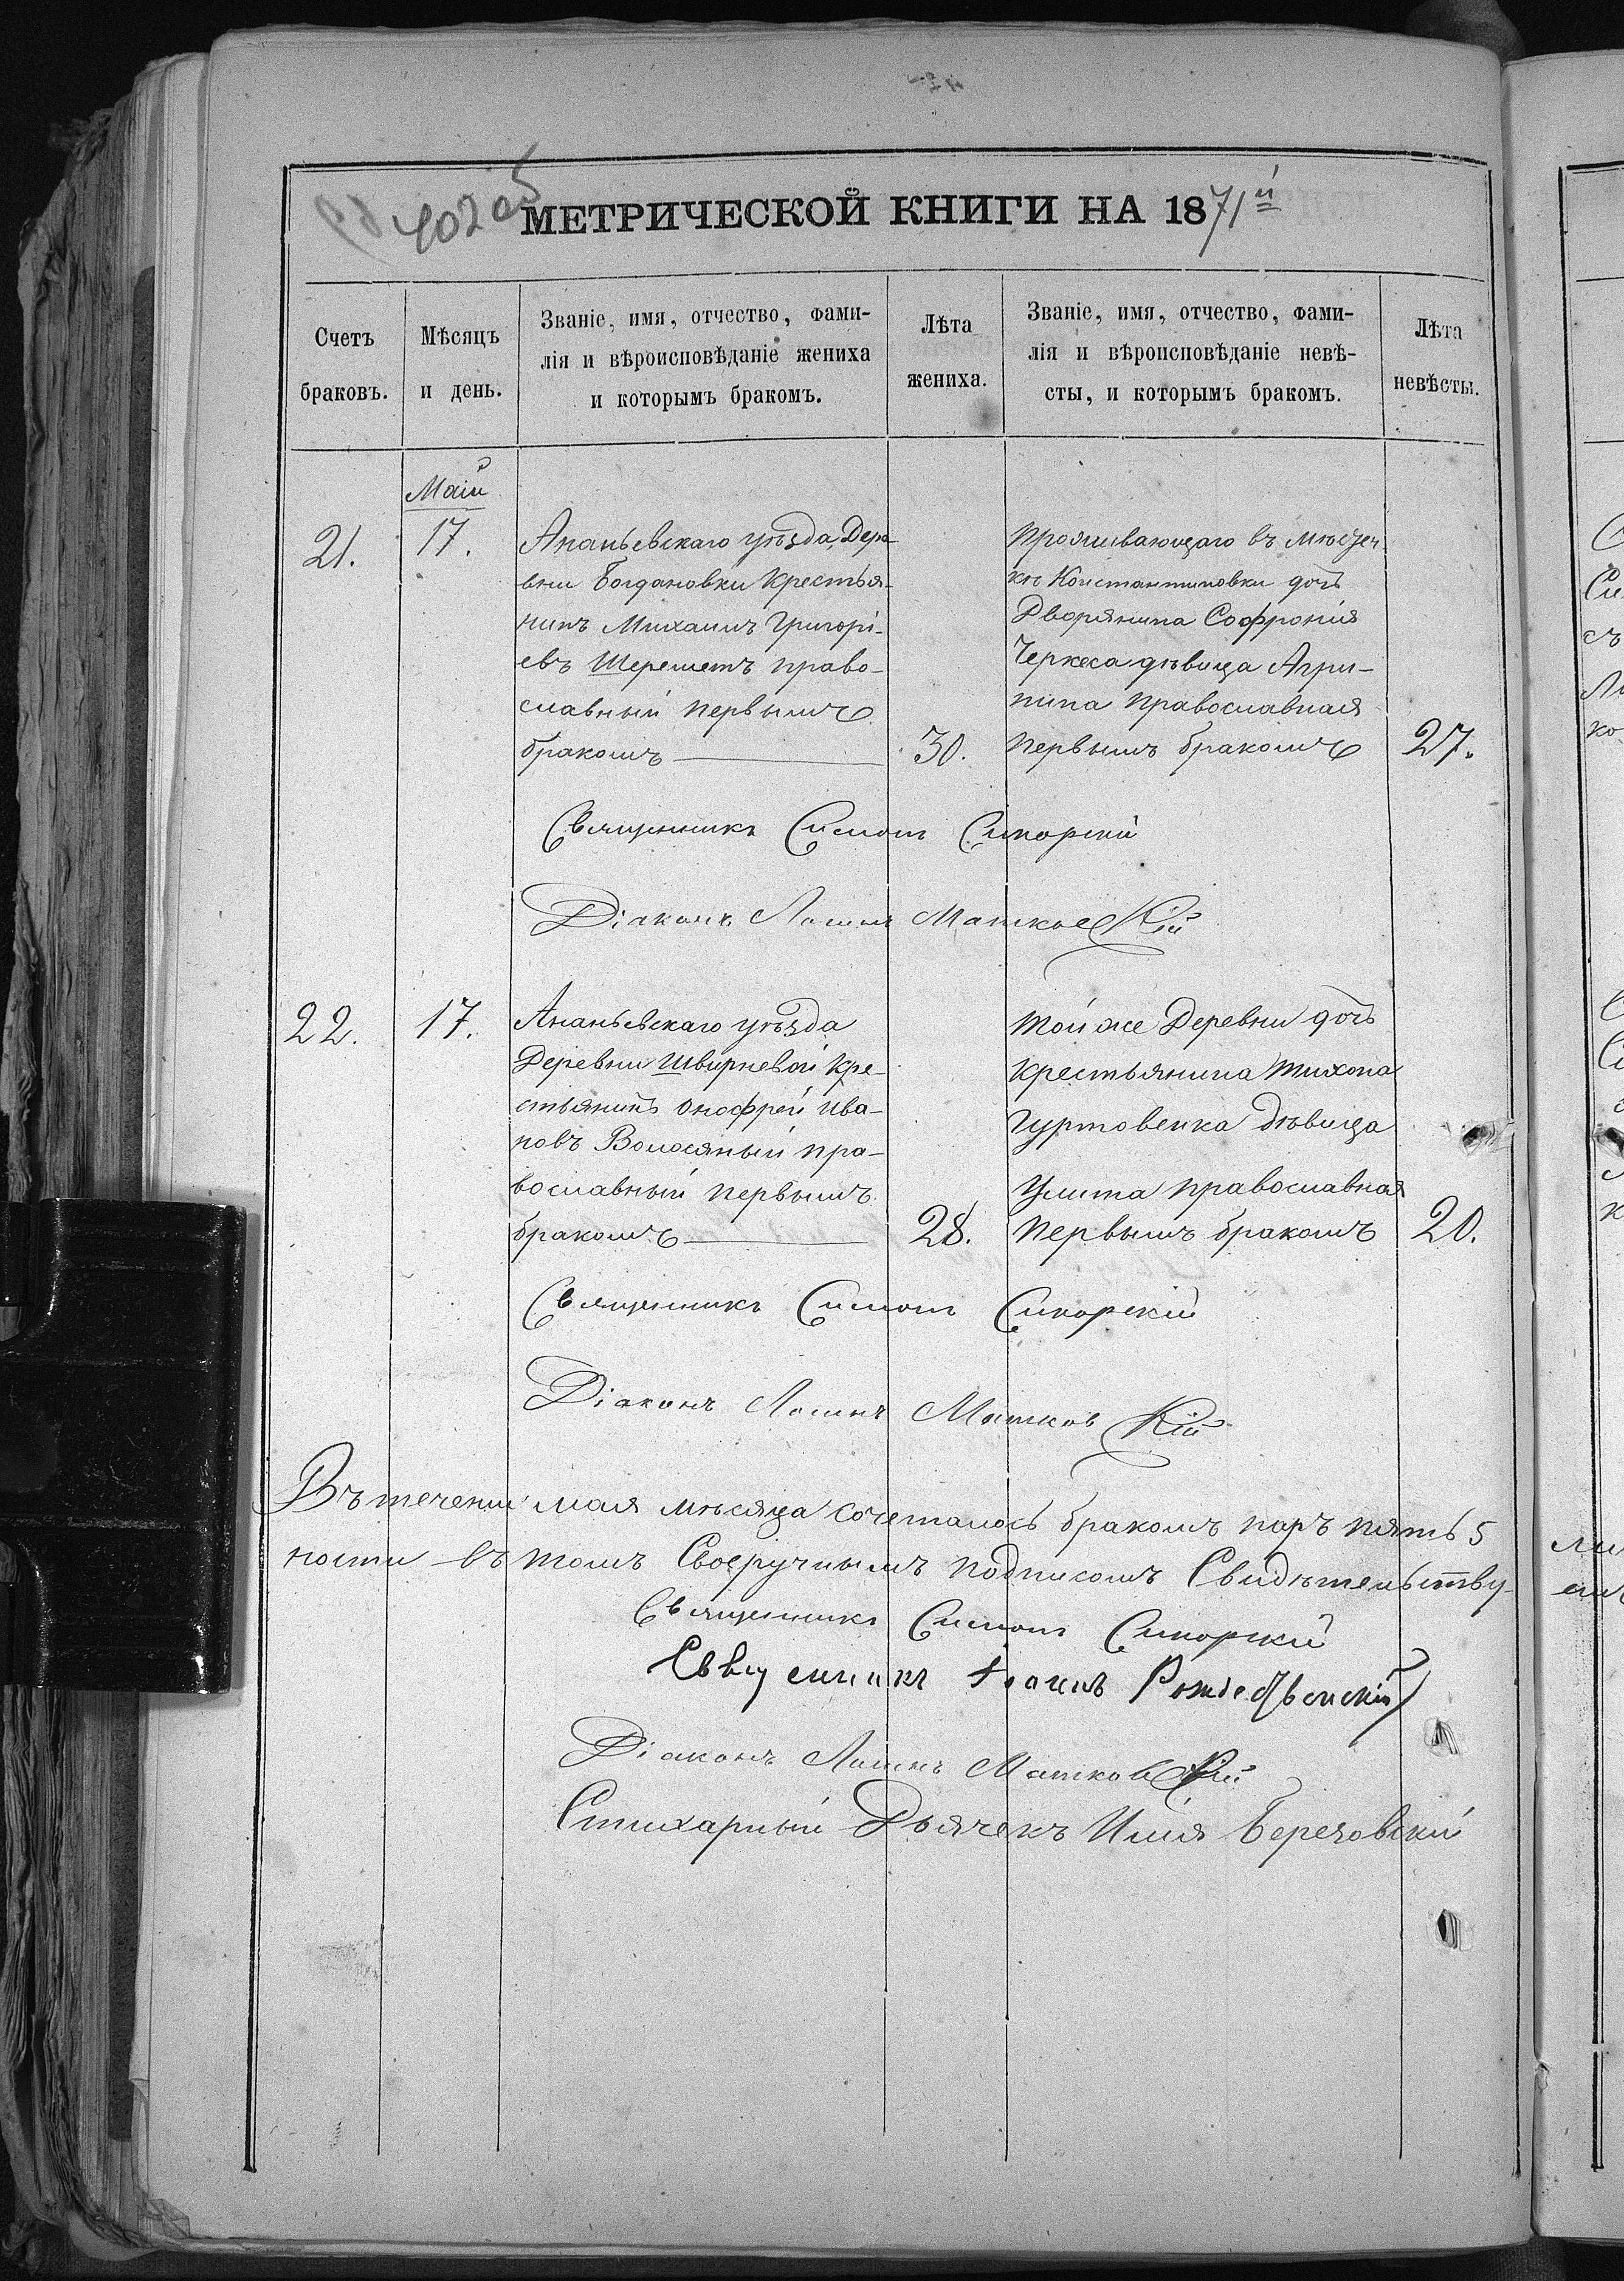 402 об
МЕТРИЧЕСКОЙ КНИГИ НА 1871й
Счетъ браковъ.
Мѣсяцъ и день.
Званіе, имя, отчество, фами-
лія и вѣроисповѣданіе жениха
и которымъ бракомъ.
Лѣта жениха.
Званіе, имя, отчество, фами-
лія и вѣроисповѣданіе невѣ-
сты, и которымъ бракомъ.
Лѣта невѣсты.
Маій
21.
17.
Ананьевскаго уѣзда, Дере-
вни Богдановки Крестья-
нинъ Михаилъ Григорі-
евъ Шереметъ право-
славный первымъ
бракомъ
30.
Проживающаго въ мѣстеч
кѣ Константиновки дочь
Дворянина Софронія
Черкеса дѣвица Агри-
пина Православная
первымъ бракомъ
27.
Священникъ Симонъ Сикорскій
Діаконъ Логинъ Матковскій
22.
17.
Ананьевскаго уѣзда
Деревни Швирневой Кре-
стьянинъ Онофрей Ива-
новъ Волосяный пра-
вославный первымъ
бракомъ
28.
Той же Деревни дочь
Крестьянина Тихона
Гуртовенка дѣвица
Улита православная
первымъ бракомъ
20.
Священникъ Симонъ Сикорскій
Діаконъ Логинъ Матковскій
Въ теченіи мая мѣсяца сочеталось бракомъ паръ пять 5
ности въ томъ Своеручнымъ подписомъ Свидѣтельству-
Священникъ Симонъ Сикорскій
Священникъ Іоаннъ Рождественскій
Діаконъ Логинъ Матковскій
Стихарный Дьячекъ Илія Березовскій